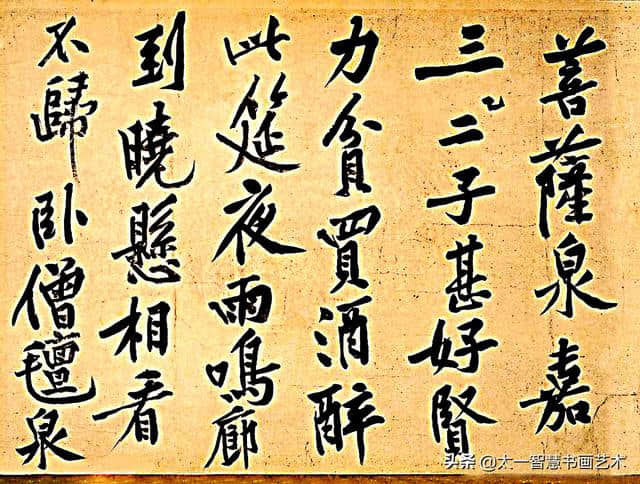 菩薩泉嘉
三二子甚好賢
力貧買酒醉
此筵夜雨鳴廊
到曉懸相看
不歸卧僧氈泉
头条 @太一智慧书画艺术